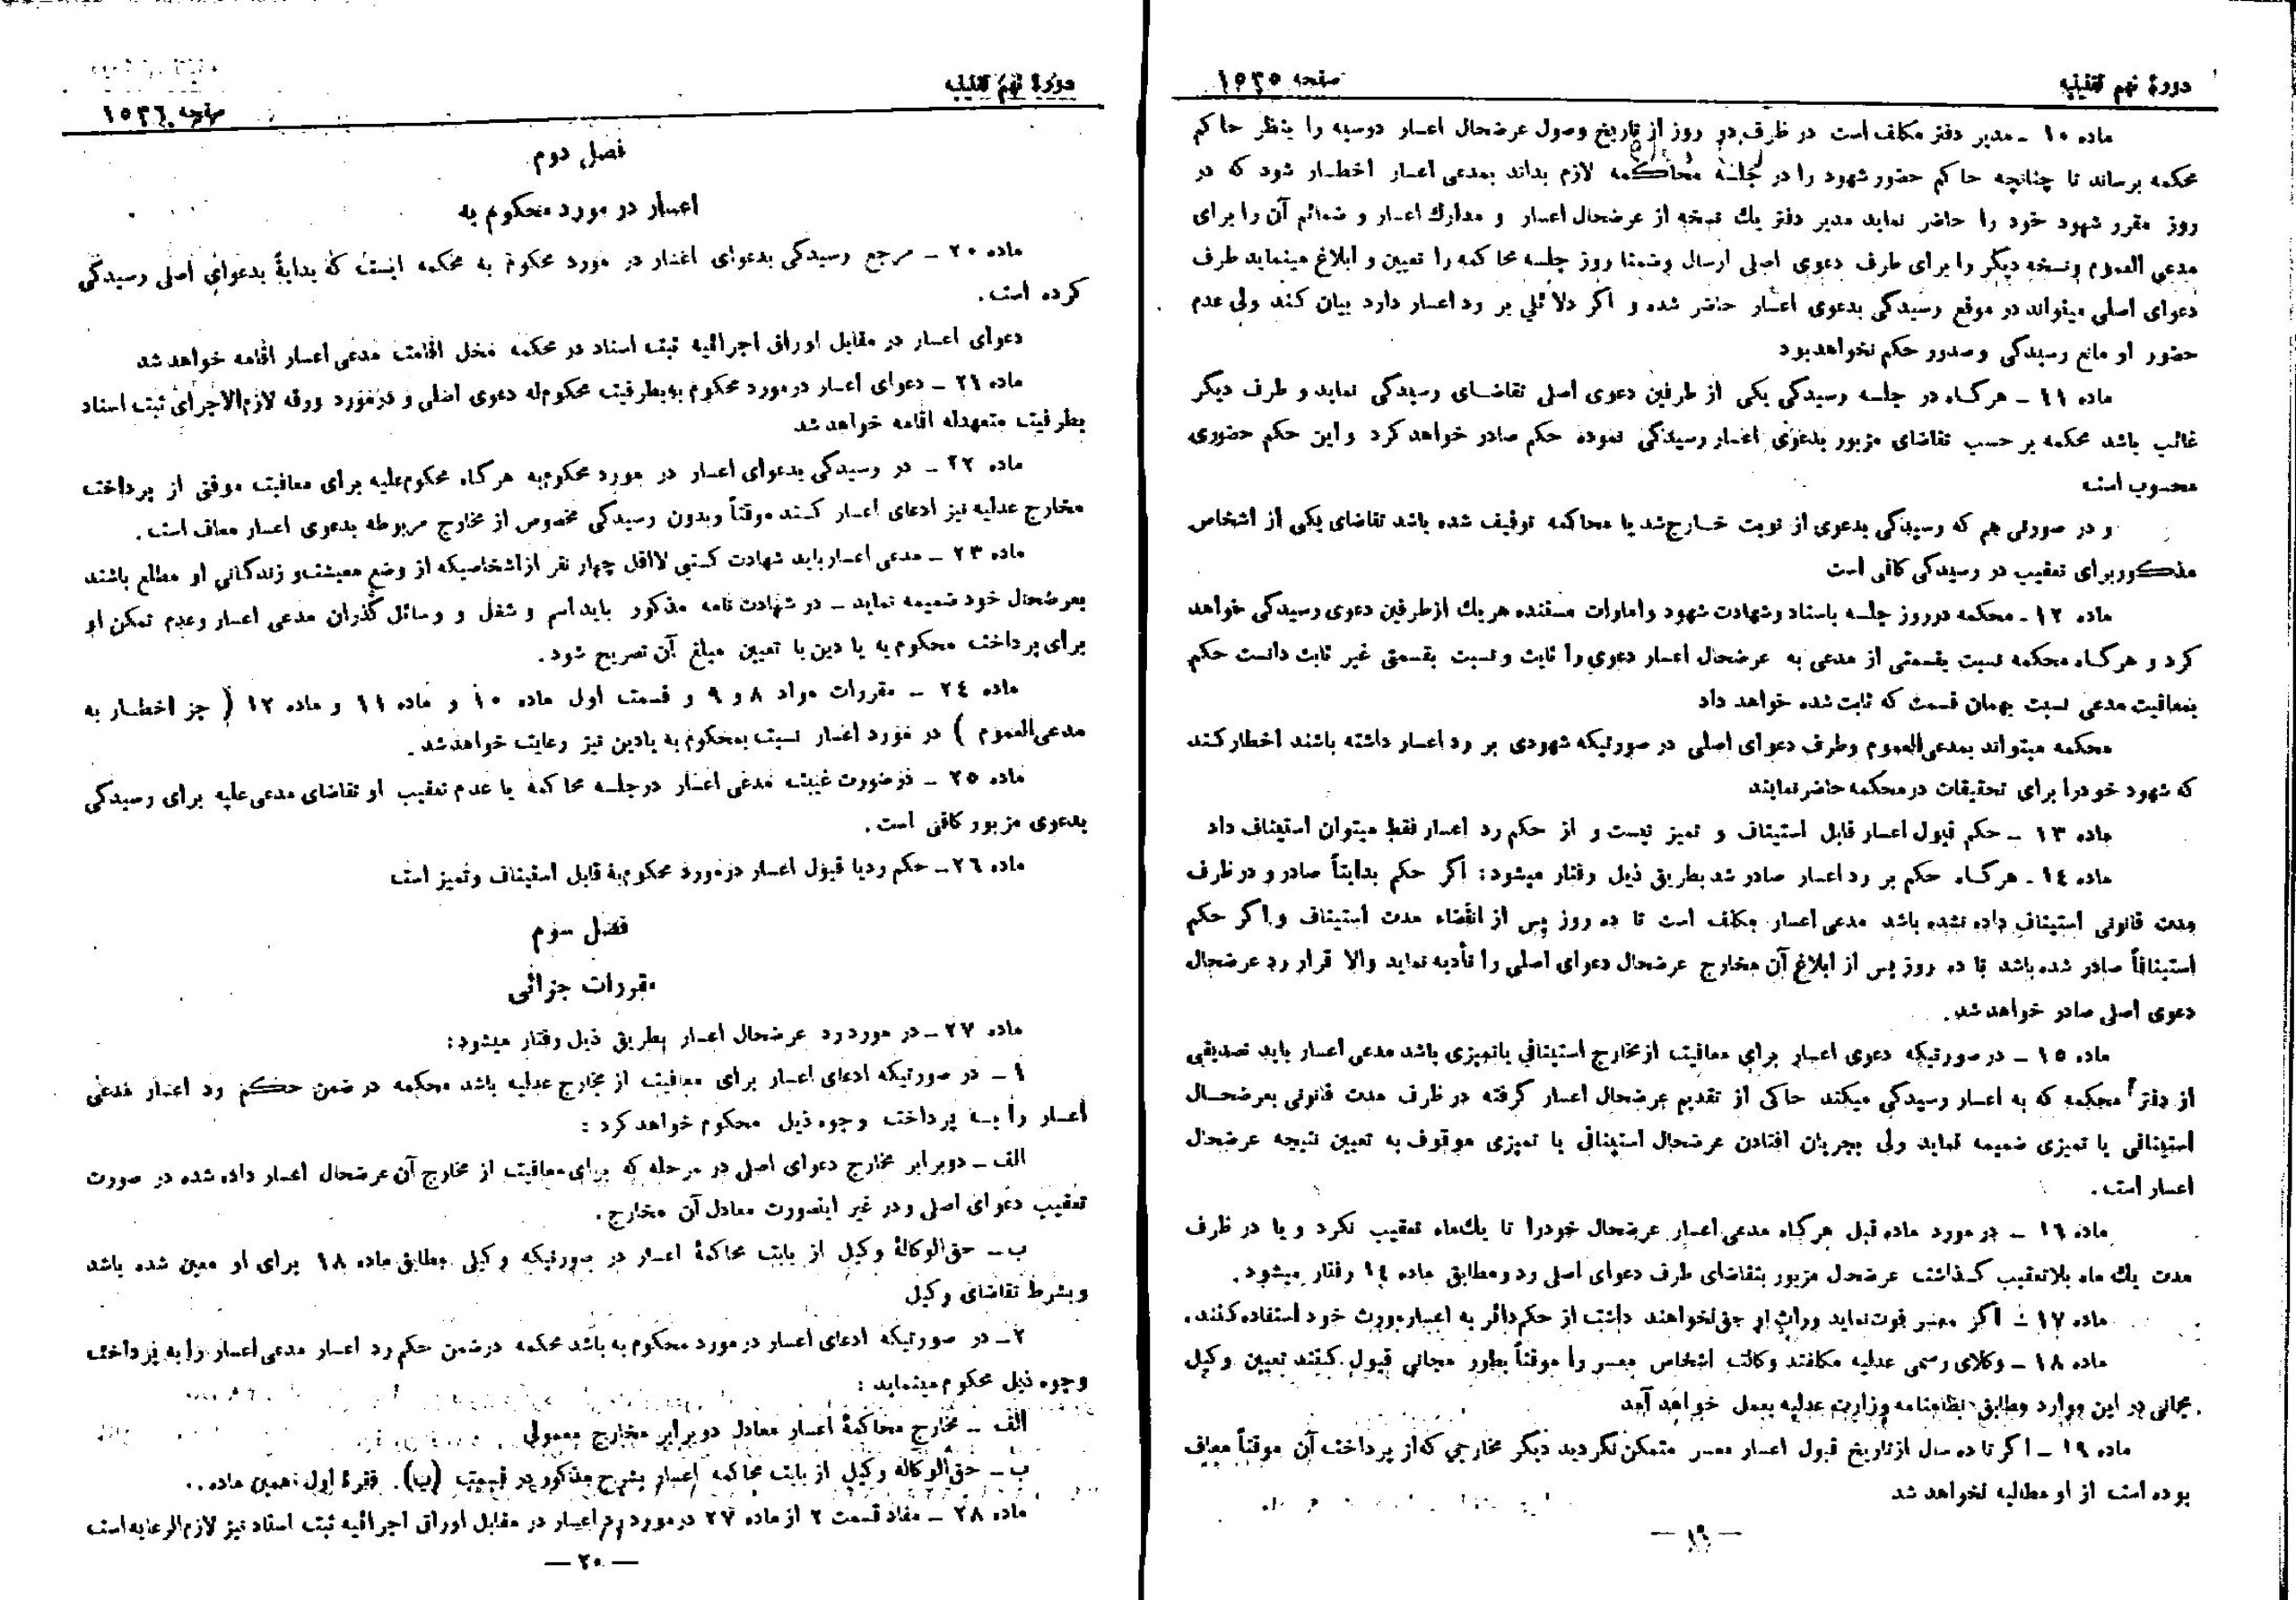 دورهٔ نهم تقنینیه
صفحه ۱۵۳۵
ماده ۱۰ ـ مدیر دفتر مکلف است در ظرف دو روز از تاریخ وصول عرضحال اعسار دوسیه را بنظر حاکم
محکمه برساند تا چنانچه حاکم حضور شهود را در جلسهٔ محاکمه لازم بداند بمدعی اعسار اخطار شود که در
روز مقرر شهود خود را حاضر نماید مدیر دفتر یك نسخه از عرضحال اعسار و مدارك اعسار و ضمائم آن را برای
مدعی العموم ونسخه دیگر را برای طرف دعوی اصلی ارسال وضمنا روز جلسه محاکمه را تعیین و ابلاغ مینماید طرف
دعوای اصلی میتواند در موقع رسیدگی بدعوی اعسار حاضر شده و اگر دلائلی بر رد اعسار دارد بیان کند ولی عدم
حضور او مانع رسیدگی و صدور حکم نخواهد بود
ماده ۱۱ ـ هرگاه در جلسه رسیدگی یکی از طرفین دعوی اصلی تقاضای رسیدگی نماید و طرف دیگر
غائب باشد محکمه بر حسب تقاضای مزبور بدعوی اعسار رسیدگی نموده حکم صادر خواهد کرد و این حکم حضوری
محسوب است
و در صورتی هم که رسیدگی بدعوی از نوبت خارج شد یا محاکمه توقیف شده باشد تقاضای یکی از اشخاص
مذکور برای تعقیب در رسیدگی کافی است
ماده ۱۲ ـ محکمه در روز جلسه باسناد وشهادت شهود و امارات مستنده هریك از طرفین دعوی رسیدگی خواهد
کرد و هرگاه محکمه نسبت بقسمتی از مدعی به عرضحال اعسار دعوی را ثابت و نسبت بقسمتی غیر ثابت دانست حکم
بمعافیت مدعی نسبت بهمان قسمت که ثابت شده خواهد داد
محکمه میتواند بمدعی العموم وطرف دعوای اصلی در صورتیکه شهودی بر رد اعسار داشته باشند اخطار کند
که شهود خودرا برای تحقیقات در محکمه حاضر نمایند
ماده ۱۳ ـ حکم قبول اعسار قابل استیناف و تمیز نیست و از حکم رد اعسار فقط میتوان استیناف داد
ماده ۱٤ ـ هرگاه حکم بر رد اعسار صادر شد بطریق ذیل رفتار میشود: اگر حکم بدایتاً صادر و در ظرف
مدت قانونی استیناف داده نشده باشد مدعی اعسار مکلف است تا ده روز پس از انقضاء مدت استیناف و اگر حکم
استینافاً صادر شده باشد تا ده روز پس از ابلاغ آن مخارج عرضحال دعوای اصلی را تأدیه نماید والا قرار رد عرضحال
دعوی اصلی صادر خواهد شد.
ماده ۱۵ ـ در صورتیکه دعوی اعسار برای معافیت از مخارج استینافی یا تمیزی باشد مدعی اعسار باید تصدیقی
از دفتر محکمه که به اعسار رسیدگی میکند حاکی از تقدیم عرضحال اعسار گرفته در ظرف مدت قانونی بعرضحال
استینافی یا تمیزی ضمیمه نماید ولی بجریان افتادن عرضحال استینافی یا تمیزی موقوف به تعیین نتیجه عرضحال
اعسار است.
ماده ۱٦ ـ در مورد ماده قبل هرگاه مدعی اعسار عرضحال خودرا تا یك ماه تعقیب نکرد و یا در ظرف
مدت یك ماه بلا تعقیب گذاشت عرضحال مزبور بتقاضای طرف دعوای اصلی رد و مطابق ماده ۱٤ رفتار میشود.
ماده ۱۷ ـ اگر معسر فوت نماید وراث او حق نخواهند داشت از حکم دائر به اعسار مورث خود استفاده کنند.
ماده ۱۸ ـ وکلای رسمی عدلیه مکلفند وکالت اشخاص معسر را موقتاً بطور مجانی قبول کنند تعیین وکیل
مجانی در این موارد مطابق نظامنامه وزارت عدلیه بعمل خواهد آمد
ماده ۱۹ ـ اگر تا ده سال از تاریخ قبول اعسار معسر متمکن نگردید دیگر مخارجی که از پرداخت آن موقتاً معاف
بوده است از او مطالبه نخواهد شد
— ۱۹ —
دورهٔ نهم تقنینیه
صفحه ۱۵۳٦
فصل دوم
اعسار در مورد محکوم به
ماده ۲۰ ـ مرجع رسیدگی بدعوای اعسار در مورد محکوم به محکمه ایست که بدایةً بدعوای اصلی رسیدگی
کرده است.
دعوای اعسار در مقابل اوراق اجرائیه ثبت اسناد در محکمه محل اقامت مدعی اعسار اقامه خواهد شد
ماده ۲۱ ـ دعوای اعسار در مورد محکوم به بطرفیت محکوم له دعوی اصلی و در مورد ورقه لازم الاجرای ثبت اسناد
بطرفیت متعهدله اقامه خواهد شد
ماده ۲۲ ـ در رسیدگی بدعوای اعسار در مورد محکوم به هرگاه محکوم علیه برای معافیت موقتی از پرداخت
مخارج عدلیه نیز ادعای اعسار کند موقتاً وبدون رسیدگی مخصوص از مخارج مربوطه بدعوی اعسار معاف است.
ماده ۲۳ ـ مدعی اعسار باید شهادت کتبی لااقل چهار نفر از اشخاصیکه از وضع معیشت و زندگانی او مطلع باشند
بعرضحال خود ضمیمه نماید ـ در شهادت نامه مذکور باید اسم و شغل و وسائل گذران مدعی اعسار وعدم تمکن او
برای پرداخت محکوم به یا دین با تعیین مبلغ آن تصریح شود.
ماده ۲٤ ـ مقررات مواد ۸ و ۹ و قسمت اول ماده ۱۰ و ماده ۱۱ و ماده ۱۲ ( جز اخطار به
مدعی العموم ) در مورد اعسار نسبت بمحکوم به یا دین نیز رعایت خواهد شد.
ماده ۲۵ ـ در صورت غیبت مدعی اعسار در جلسه محاکمه یا عدم تعقیب او تقاضای مدعی علیه برای رسیدگی
بدعوی مزبور کافی است.
ماده ۲٦ ـ حکم رد یا قبول اعسار در مورد محکوم به قابل استیناف وتمیز است
فصل سوم
مقررات جزائی
ماده ۲۷ ـ در مورد رد عرضحال اعسار بطریق ذیل رفتار میشود:
۱ ـ در صورتیکه ادعای اعسار برای معافیت از مخارج عدلیه باشد محکمه در ضمن حکم رد اعسار مدعی
اعسار را به پرداخت وجوه ذیل محکوم خواهد کرد :
الف ـ دوبرابر مخارج دعوای اصلی در مرحله که برای معافیت از مخارج آن عرضحال اعسار داده شده در صورت
تعقیب دعوای اصلی و در غیر اینصورت معادل آن مخارج.
ب ـ حق الوکالهٔ وکیل از بابت محاکمهٔ اعسار در صورتیکه وکیلی مطابق ماده ۱۸ برای او معین شده باشد
وبشرط تقاضای وکیل
۲ ـ در صورتیکه ادعای اعسار در مورد محکوم به باشد محکمه در ضمن حکم رد اعسار مدعی اعسار را به پرداخت
وجوه ذیل محکوم مینماید :
الف ـ مخارج محاکمهٔ اعسار معادل دو برابر مخارج معمولی
ب ـ حق الوکاله وکیل از بابت محاکمه اعسار بشرح مذکور در قسمت (ب) فقرهٔ اول همین ماده.
ماده ۲۸ ـ مفاد قسمت ۲ از ماده ۲۷ در مورد رد اعسار در مقابل اوراق اجرائیه ثبت اسناد نیز لازم الرعایه است
— ۲۰ —